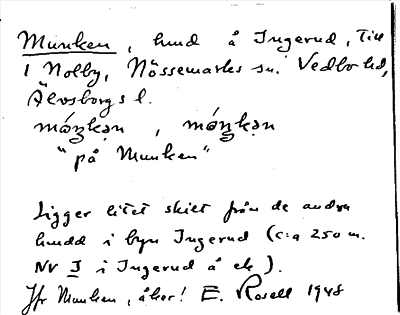 Munken, hmd å Ingerud, till
1 Nolby, Nössemarks sn. Vedbo hd,
Älvsborgs l.
móŋkən, móŋkən
"på Munken"
Ligger litet skilt från de andra
hmdd i byn Ingerud (c:a 250 m.
NV I i Ingerud å ek).
Jfr Munken, åker! E. Rosell 1948